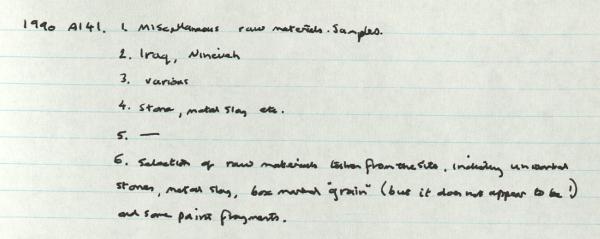 1990 A141. 1. Miscellaneous raw materials. Samples.
2. Iraq, Nineveh
3. various
4. Stone, metal slag etc.
5. —
6. Selection of raw materials taken from the site, including unworked
stones, metal slag, box marked "grain" (but it does not appear to be!)
and some paint fragments.